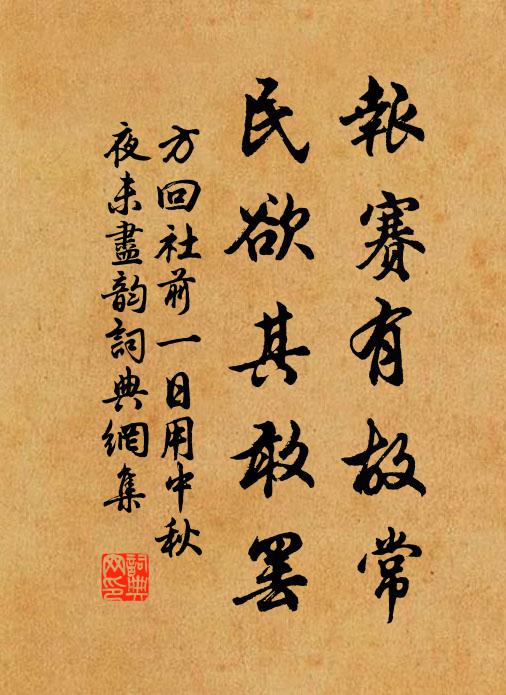 報賽有故常
民欲其敢罷
方回社前一日用中秋
夜未盡韵詞典網集
詞典網印